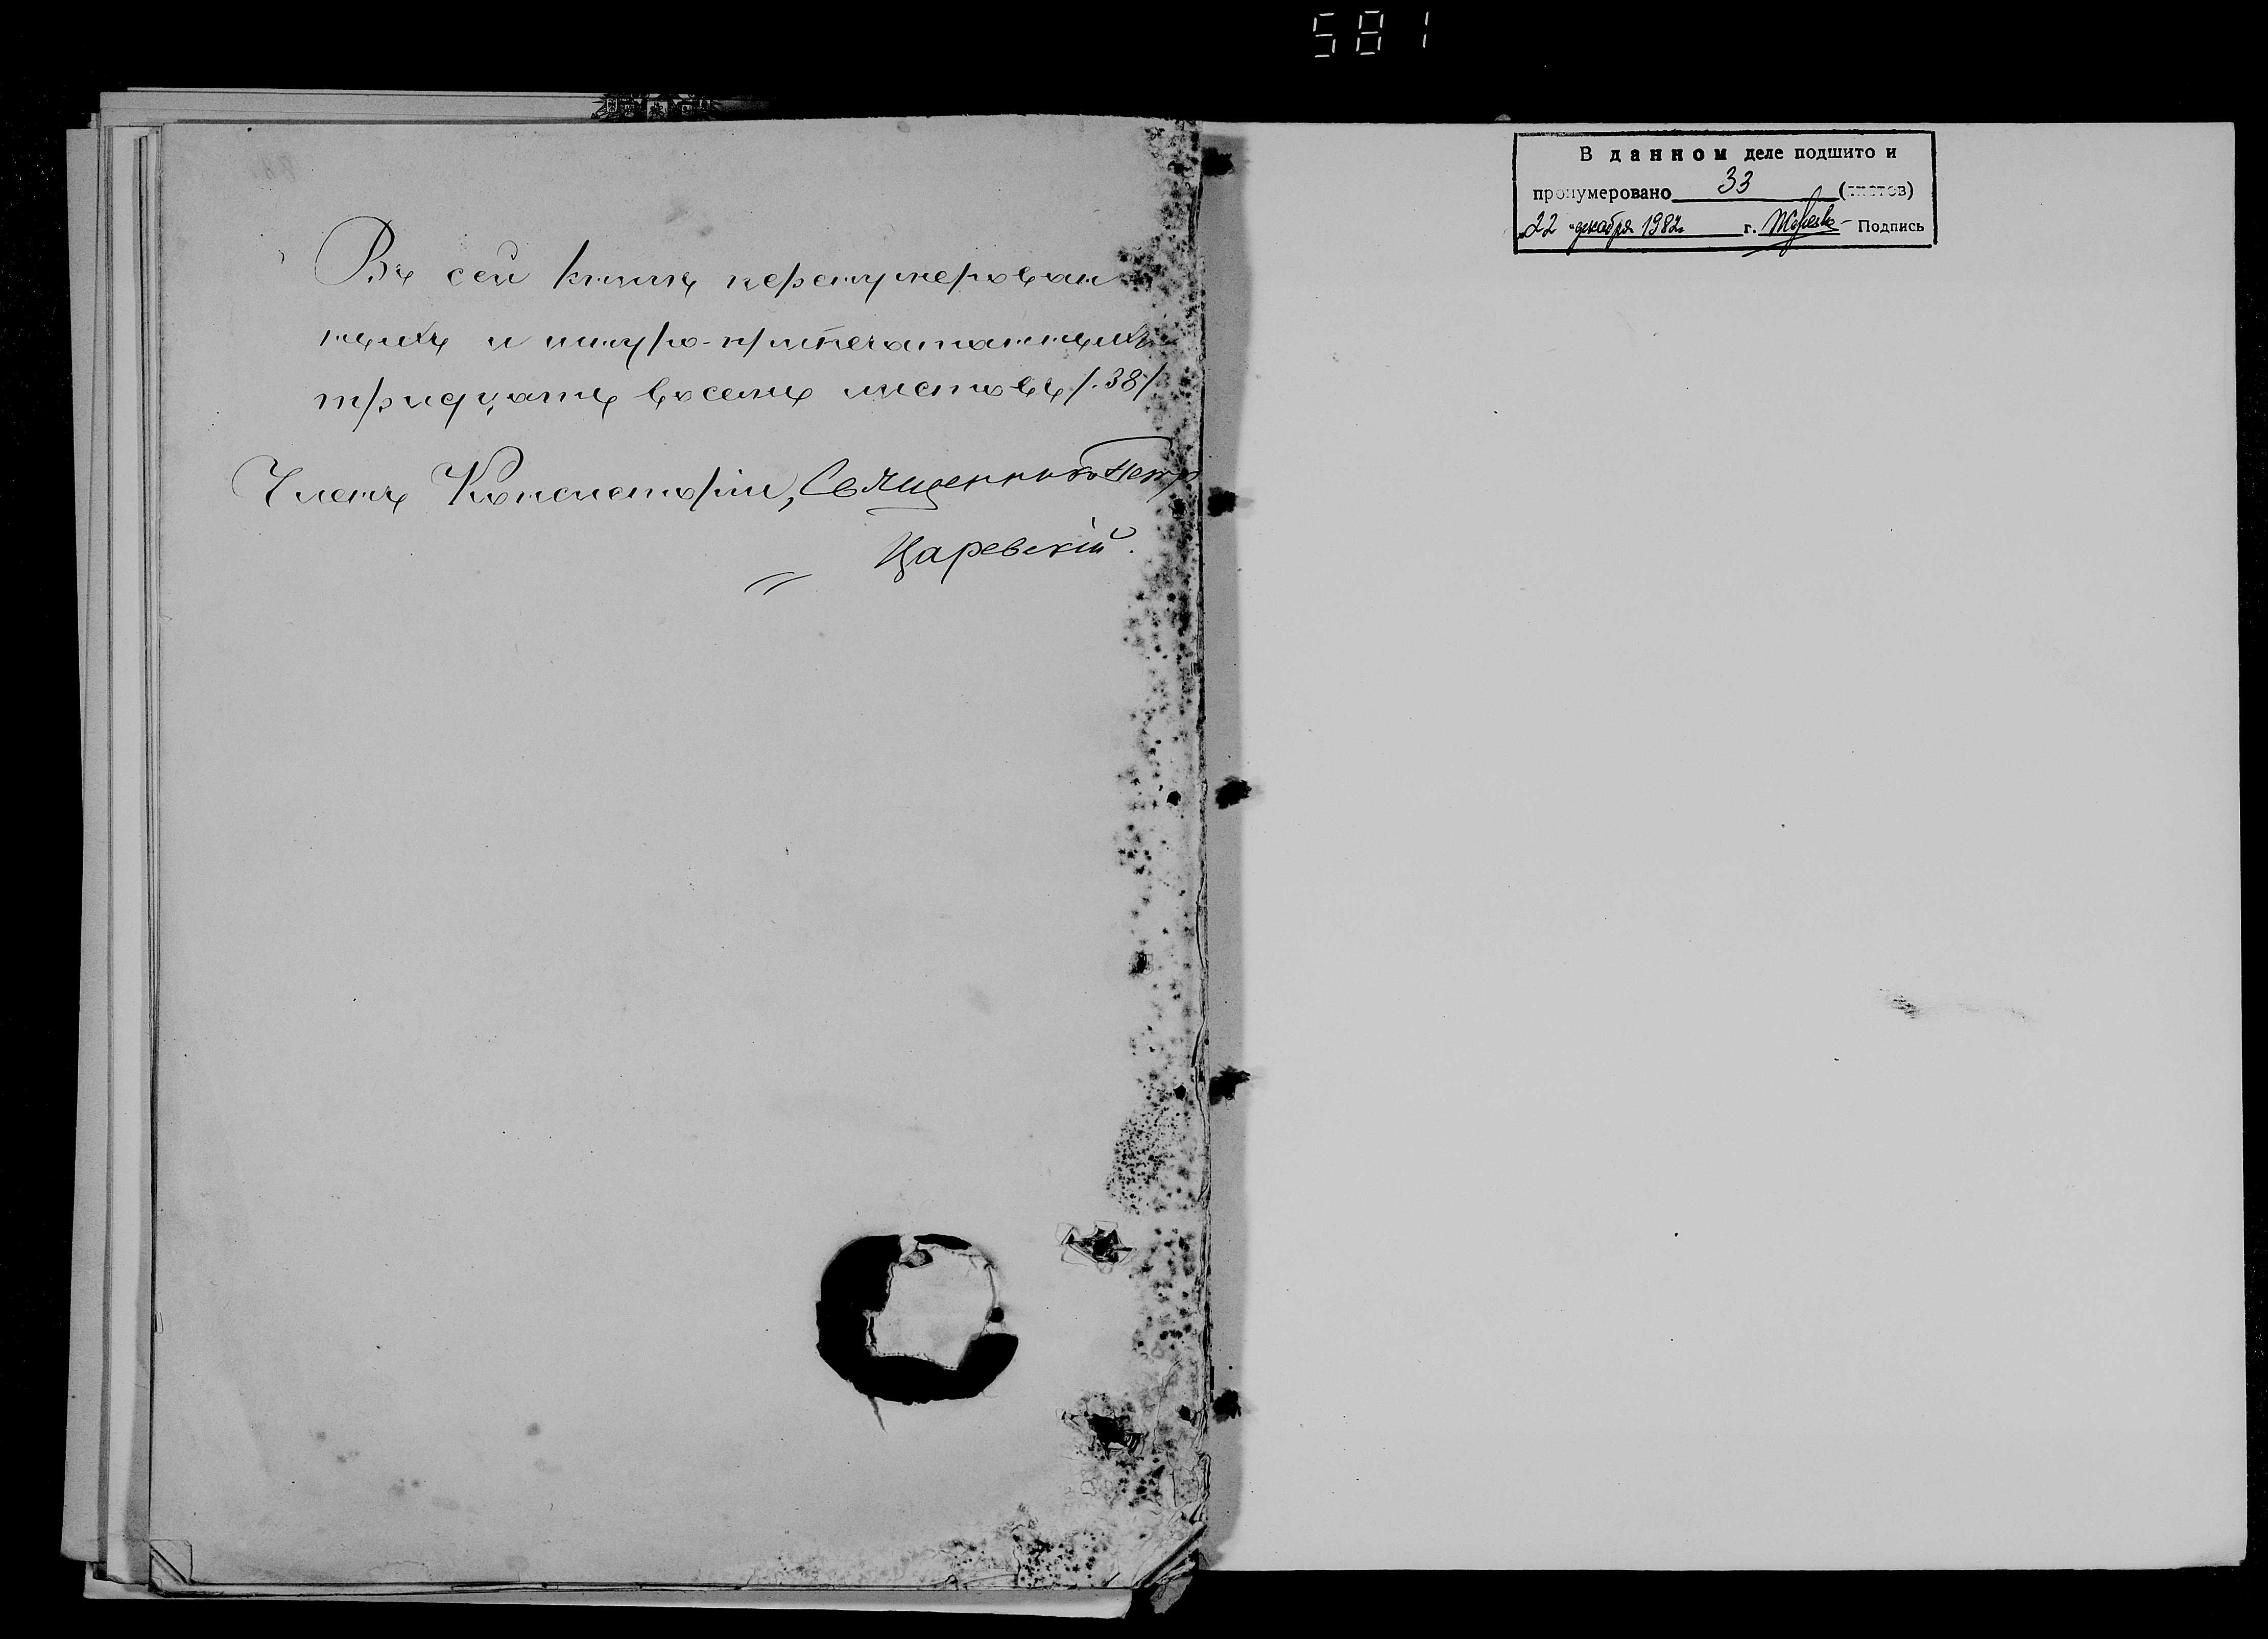 581
Въ сей книгѣ перенумерован
ныхъ и шнуро-припечатанныхъ
тридцать восемь листовъ /.38/
Членъ Консисторіи, Священникъ Петръ
Царевскій.
В данном деле подшито и
пронумеровано 33 (листов)
„22 " декабря 1982 г. Подпись